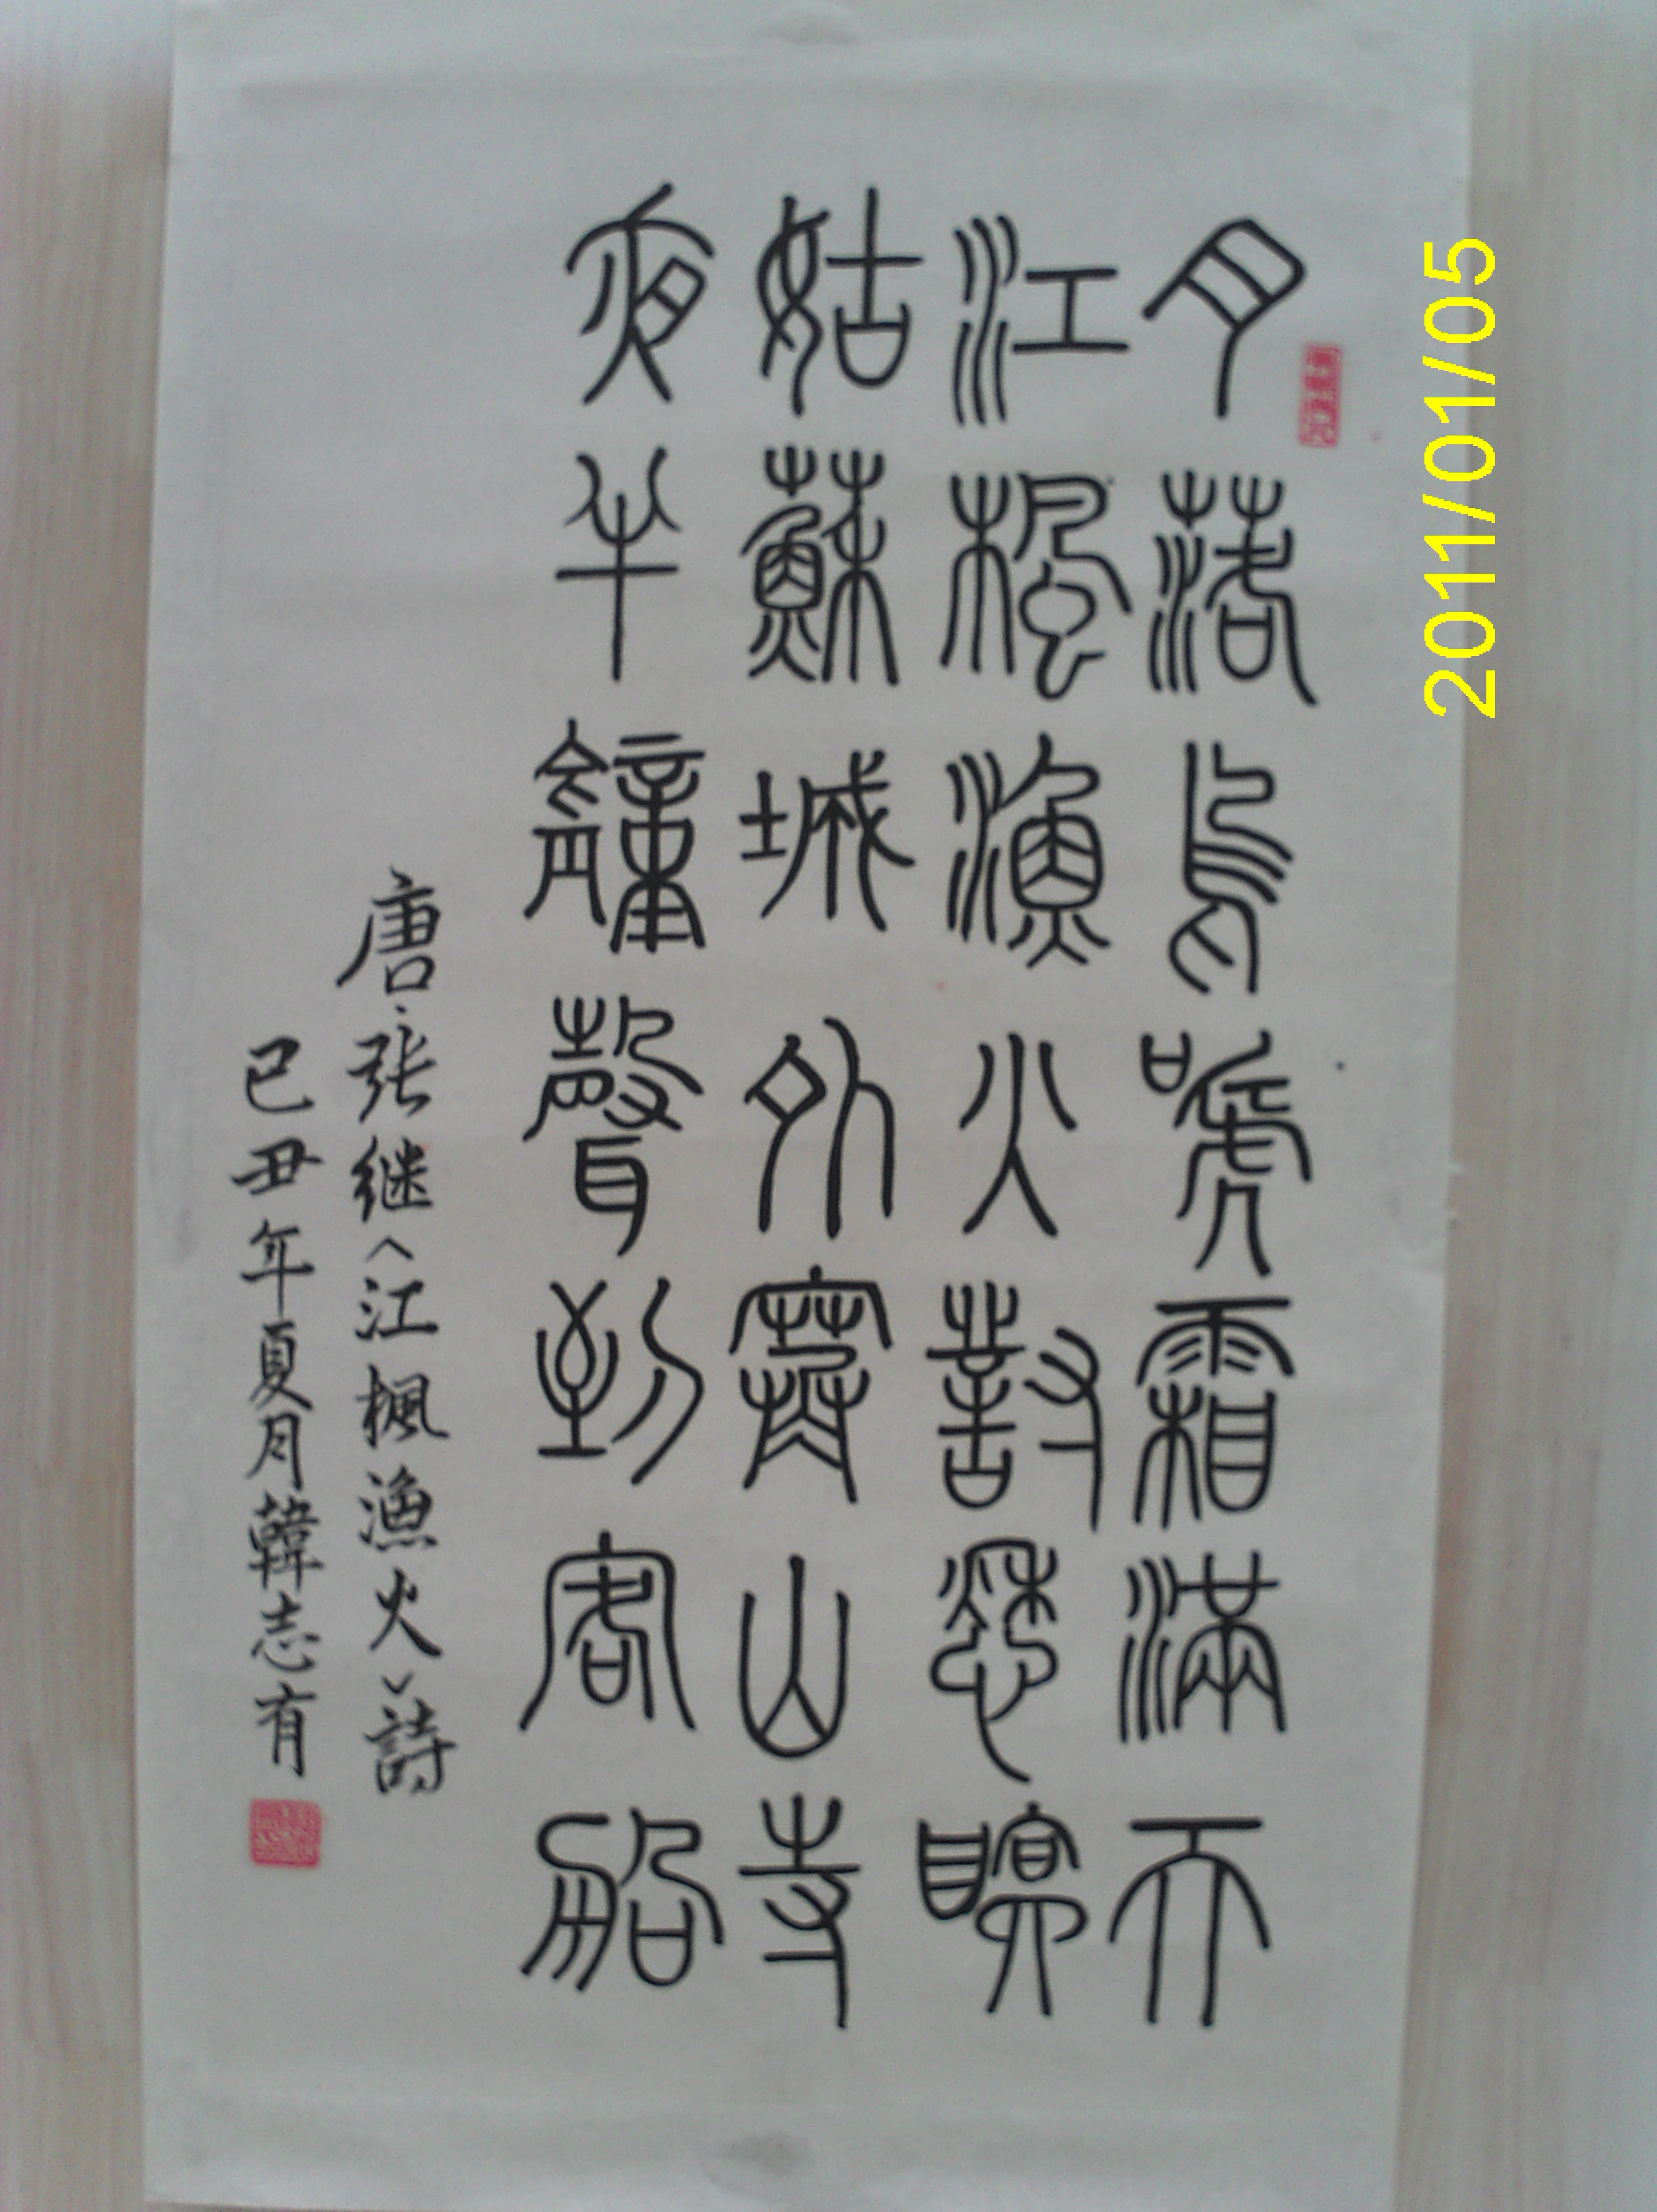 月落烏嗁霜滿天
江楓漁火對愁瞑
姑蘇城外寒山寺
夜半鐘聲到客船
唐·张继〈江楓漁火〉詩
己丑年夏月韓志有
2011/01/05